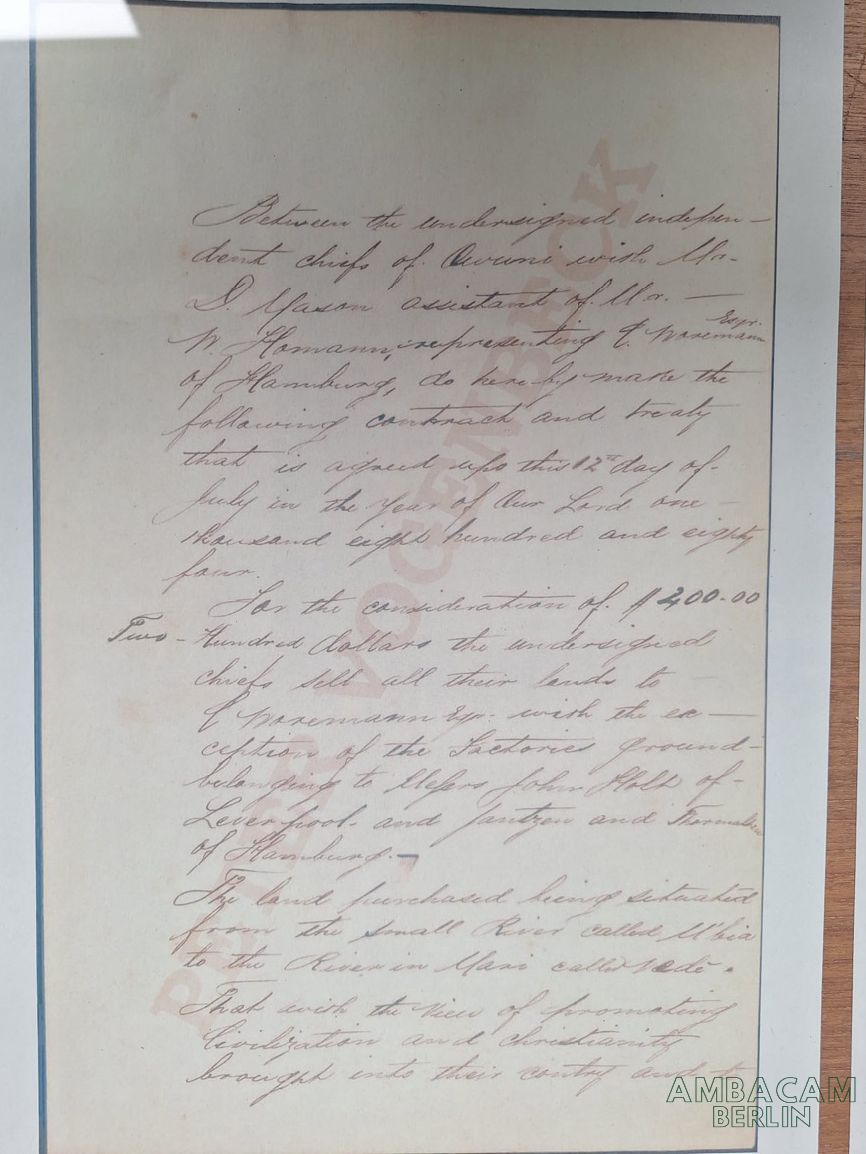 Between the undersigned indepen-
dent chiefs of Owuni with Mr.
D. Mason assistant of Mr. —
W. Homann, representing C. Woremann Esqr.
of Hamburg, do hereby make the
following contrack and treaty
that is agreed upo this 12th day of
July in the Year of Our Lord one
thousand eight hundred and eighty
four.
For the consideration of $ 200.00
Two - Hundred dollars the undersigned
chiefs sell all their lands to
C Woremann Eqr. with the ex —
ception of the Factories ground
belonging to Messrs John Holt of
Leverpool and Jantzen and
of Hamburg. —
The land purchased being situated
from the small River called M'bia
to the River in Mari called Nedè.
That with the View of promoting
Civilization and Christianity
brought into their contry and
PETER VOGENBECK
AMBACAM
BERLIN